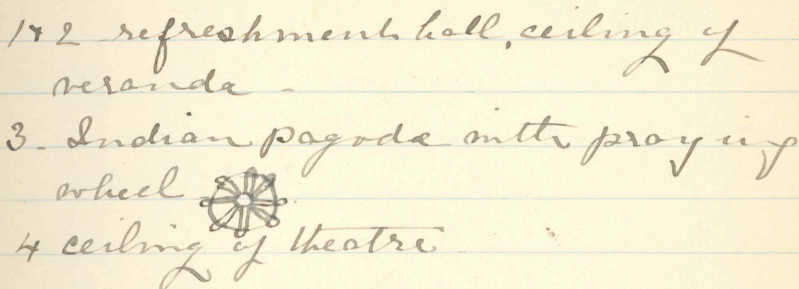 1+2 refreshment hall, ceiling of
veranda -
3 - Indian pagoda with praying
wheel
4 ceiling of theatre